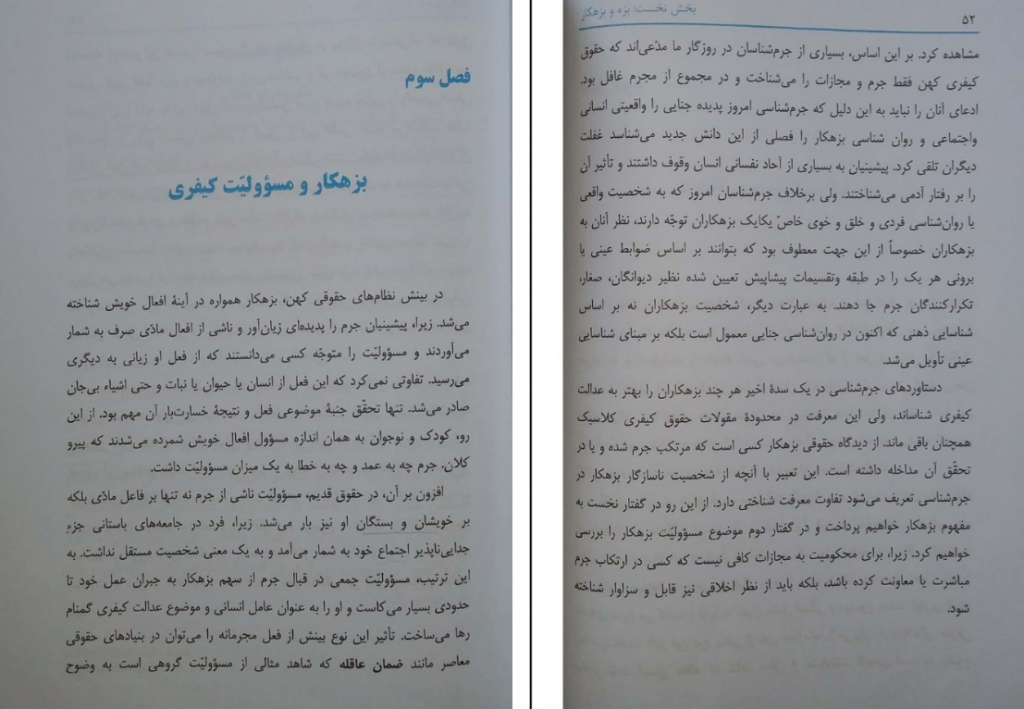 فصل سوم
بزهکار و مسؤولیّت کیفری
در بینش نظام‌های حقوقی کهن، بزهکار همواره در آینهٔ افعال خویش شناخته
می‌شد. زیرا، پیشینیان جرم را پدیده‌ای زیان‌آور و ناشی از افعال مادّی صرف به شمار
می‌آوردند و مسؤولیّت را متوجّه کسی می‌دانستند که از فعل او زیانی به دیگری
می‌رسید. تفاوتی نمی‌کرد که این فعل از انسان یا حیوان یا نبات و حتی اشیاء بی‌جان
صادر می‌شد. تنها تحقّق جنبهٔ موضوعی فعل و نتیجهٔ خسارت‌بار آن مهم بود. از این
رو، کودک و نوجوان به همان اندازه مسؤول افعال خویش شمرده می‌شدند که پیرو
کلان. جرم چه به عمد و چه به خطا به یک میزان مسؤولیّت داشت.
افزون بر آن، در حقوق قدیم، مسؤولیّت ناشی از جرم نه تنها بر فاعل مادّی بلکه
بر خویشان و بستگان او نیز بار می‌شد. زیرا، فرد در جامعه‌های باستانی جزء
جدایی‌ناپذیر اجتماع خود به شمار می‌آمد و به یک معنی شخصیت مستقل نداشت. به
این ترتیب، مسؤولیّت جمعی در قبال جرم از سهم بزهکار به جبران عمل خود تا
حدودی بسیار می‌کاست و او را به عنوان عامل انسانی و موضوع عدالت کیفری گمنام
رها می‌ساخت. تأثیر این نوع بینش از فعل مجرمانه را می‌توان در بنیادهای حقوقی
معاصر مانند ضمان عاقله که شاهد مثالی از مسؤولیّت گروهی است به وضوح
۵۲
بخش نخست: بزه و بزهکار
مشاهده کرد. بر این اساس، بسیاری از جرم‌شناسان در روزگار ما مدّعی‌اند که حقوق
کیفری کهن فقط جرم و مجازات را می‌شناخت و در مجموع از مجرم غافل بود.
ادعای آنان را نباید به این دلیل که جرم‌شناسی امروز پدیده جنایی را واقعیتی انسانی
واجتماعی و روان شناسی بزهکار را فصلی از این دانش جدید می‌شناسد غفلت
دیگران تلقی کرد. پیشینیان به بسیاری از آحاد نفسانی انسان وقوف داشتند و تأثیر آن
را بر رفتار آدمی می‌شناختند. ولی برخلاف جرم‌شناسان امروز که به شخصیت واقعی
یا روان‌شناسی فردی و خلق و خوی خاصّ یکایک بزهکاران توجّه دارند، نظر آنان به
بزهکاران خصوصاً از این جهت معطوف بود که بتوانند بر اساس ضوابط عینی یا
برونی هر یک را در طبقه وتقسیمات پیشاپیش تعیین شده نظیر دیوانگان، صغار،
تکرارکنندگان جرم جا دهند. به عبارت دیگر، شخصیت بزهکاران نه بر اساس
شناسایی ذهنی که اکنون در روان‌شناسی جنایی معمول است بلکه بر مبنای شناسایی
عینی تأویل می‌شد.
دستاوردهای جرم‌شناسی در یک سدهٔ اخیر هر چند بزهکاران را بهتر به عدالت
کیفری شناساند، ولی این معرفت در محدودهٔ مقولات حقوق کیفری کلاسیک
همچنان باقی ماند. از دیدگاه حقوقی بزهکار کسی است که مرتکب جرم شده و یا در
تحقّق آن مداخله داشته است. این تعبیر با آنچه از شخصیت ناسازگار بزهکار در
جرم‌شناسی تعریف می‌شود تفاوت معرفت شناختی دارد. از این رو در گفتار نخست به
مفهوم بزهکار خواهیم پرداخت و در گفتار دوم موضوع مسؤولیّت بزهکار را بررسی
خواهیم کرد. زیرا، برای محکومیت به مجازات کافی نیست که کسی در ارتکاب جرم
مباشرت یا معاونت کرده باشد، بلکه باید از نظر اخلاقی نیز قابل و سزاوار شناخته
شود.